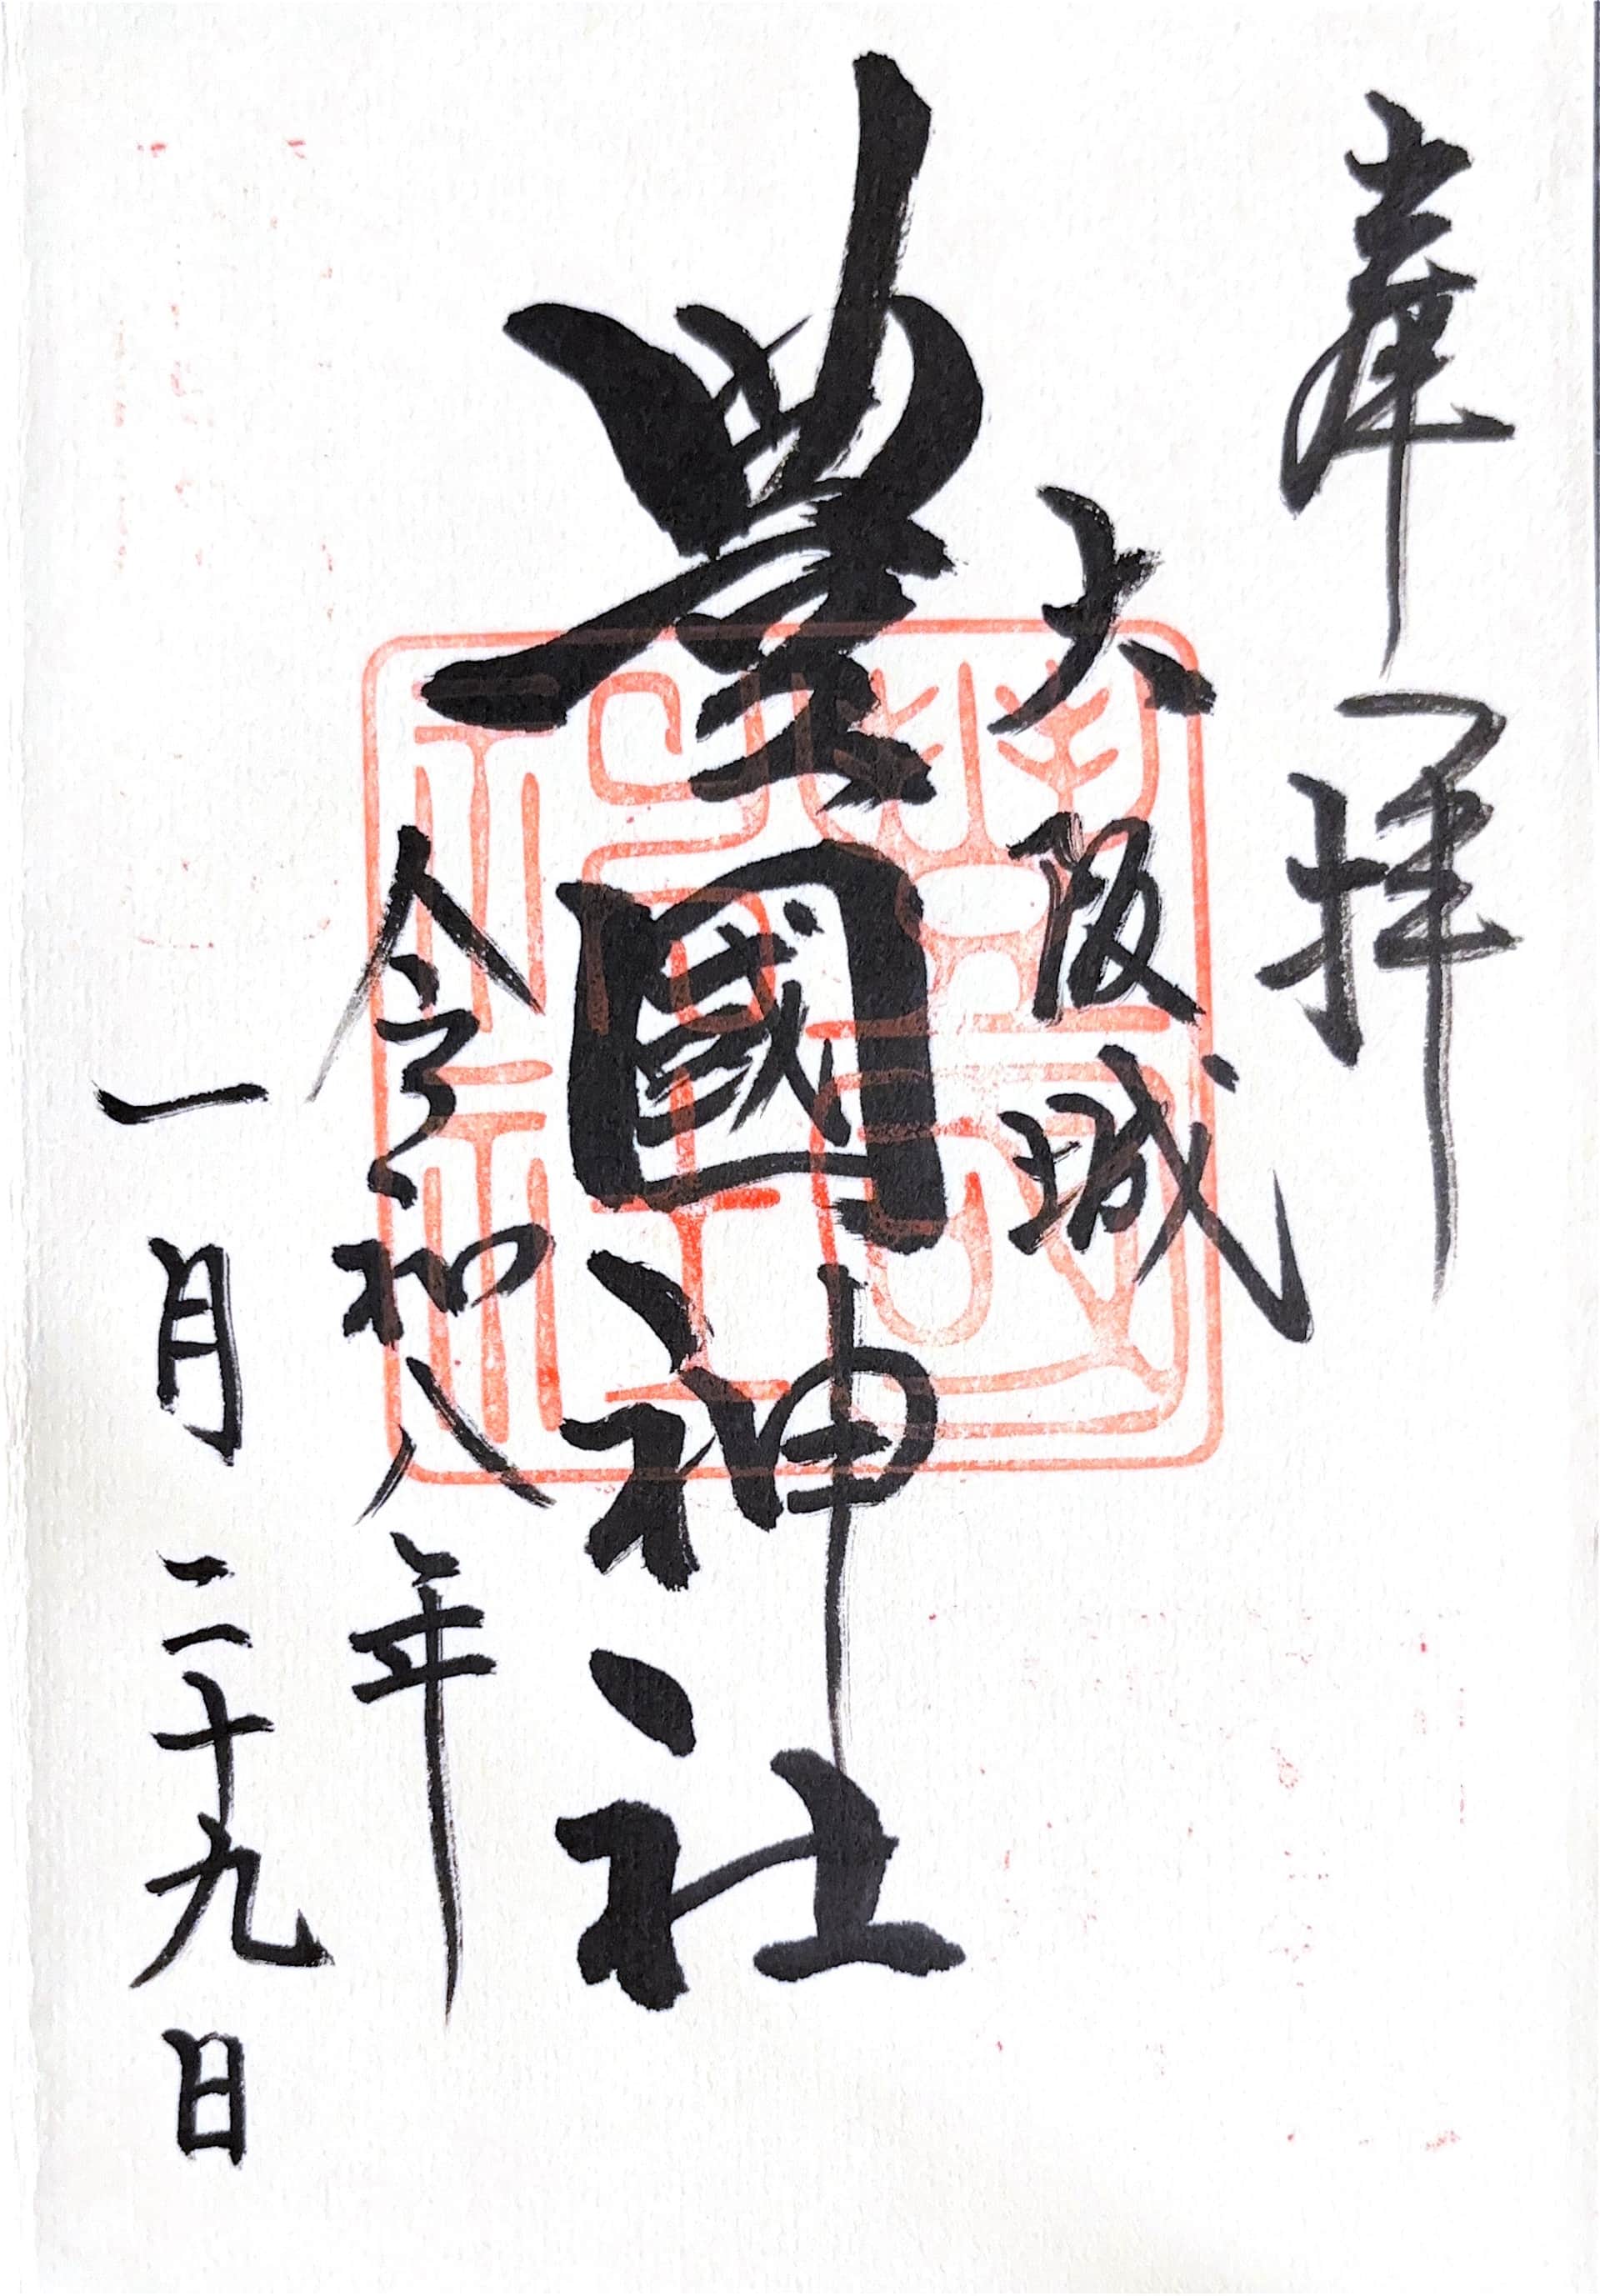 奉拝
大阪城
豊國神社
令和八年
一月二十九日